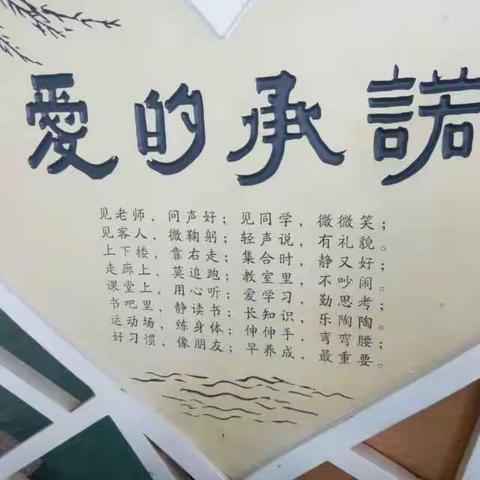 愛的承諾
见老师，问声好；见同学，微微笑；
见客人，微鞠躬；轻声说，有礼貌。
上下楼，靠右走；集合时，静又好；
走廊上，莫追跑；教室里，不吵闹。
课堂上，用心听；爱学习，勤思考；
书吧里，静读书；长知识，乐陶陶。
运动场，练身体；伸伸手，弯弯腰；
好习惯，像朋友；早养成，最重要。